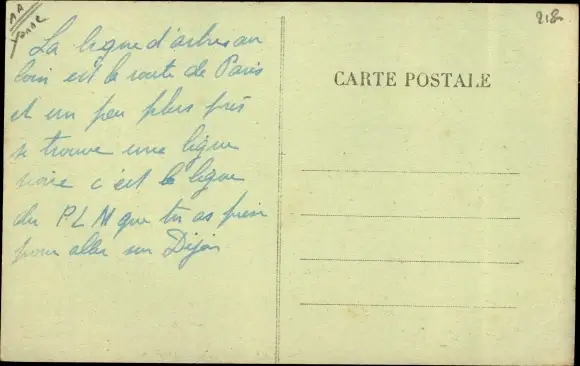 AA
YONNE
La ligne d'arbres au
loin est la route de Paris
et un peu plus près
se trouve une ligne
noire c'est la ligne
du P.L.M que tu as prise
pour aller sur Dijon
CARTE POSTALE